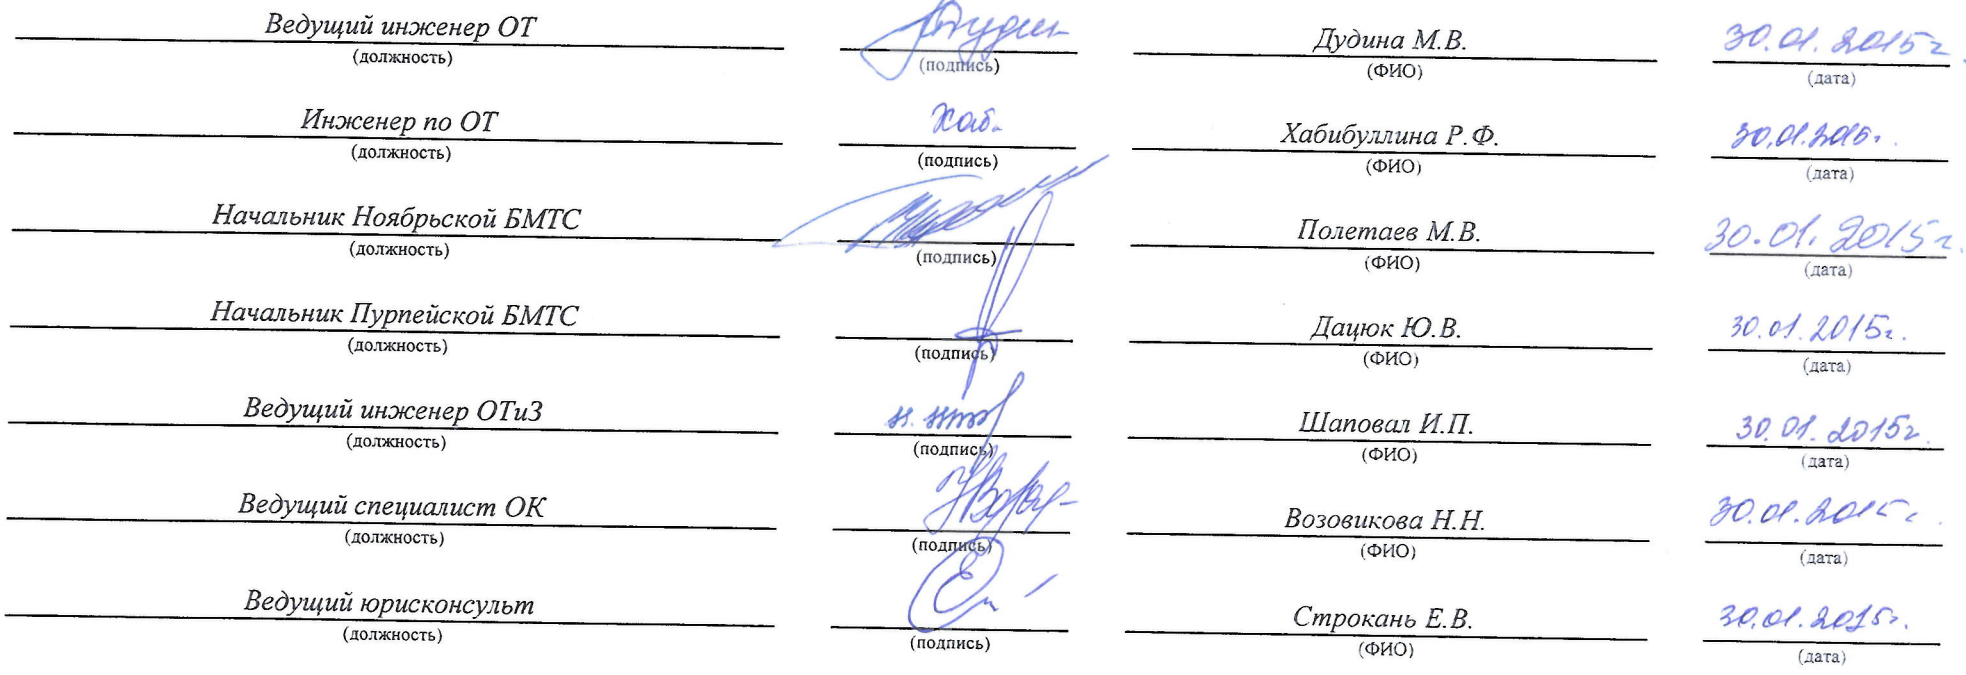 Ведущий инженер ОТ Дудина М.В. 30.01.2015г.
(должность) (подпись) (ФИО) (дата)
Инженер по ОТ Хаб. Хабибуллина Р.Ф. 30.01.2015г.
(должность) (подпись) (ФИО) (дата)
Начальник Ноябрьской БМТС Полетаев М.В. 30.01.2015г.
(должность) (подпись) (ФИО) (дата)
Начальник Пурпейской БМТС Дацюк Ю.В. 30.01.2015г.
(должность) (подпись) (ФИО) (дата)
Ведущий инженер ОТиЗ Шаповал И.П. 30.01.2015г.
(должность) (подпись) (ФИО) (дата)
Ведущий специалист ОК Возовикова Н.Н. 30.01.2015г.
(должность) (подпись) (ФИО) (дата)
Ведущий юрисконсульт Строкань Е.В. 30.01.2015г.
(должность) (подпись) (ФИО) (дата)